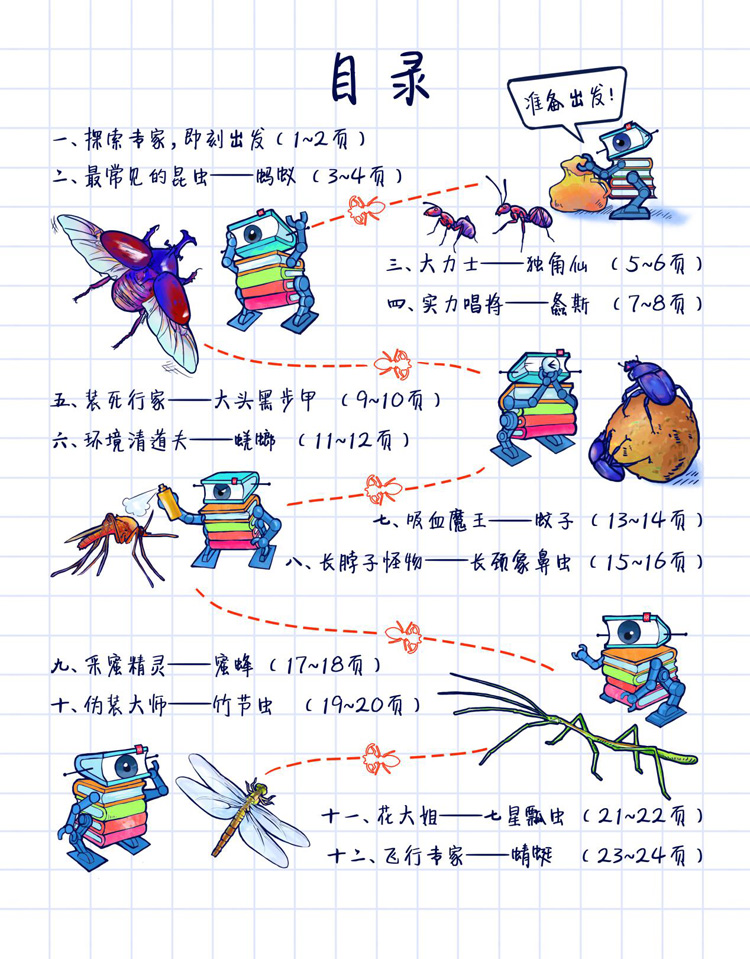 目录
准备出发！
一、探索专家,即刻出发（1~2页）
二、最常见的昆虫——蚂蚁（3~4页）
三、大力士——独角仙（5~6页）
四、实力唱将——螽斯（7~8页）
五、装死行家——大头黑步甲（9~10页）
六、环境清道夫——蜣螂（11~12页）
七、吸血魔王——蚊子（13~14页）
八、长脖子怪物——长颈象鼻虫（15~16页）
九、采蜜精灵——蜜蜂（17~18页）
十、伪装大师——竹节虫（19~20页）
十一、花大姐——七星瓢虫（21~22页）
十二、飞行专家——蜻蜓（23~24页）